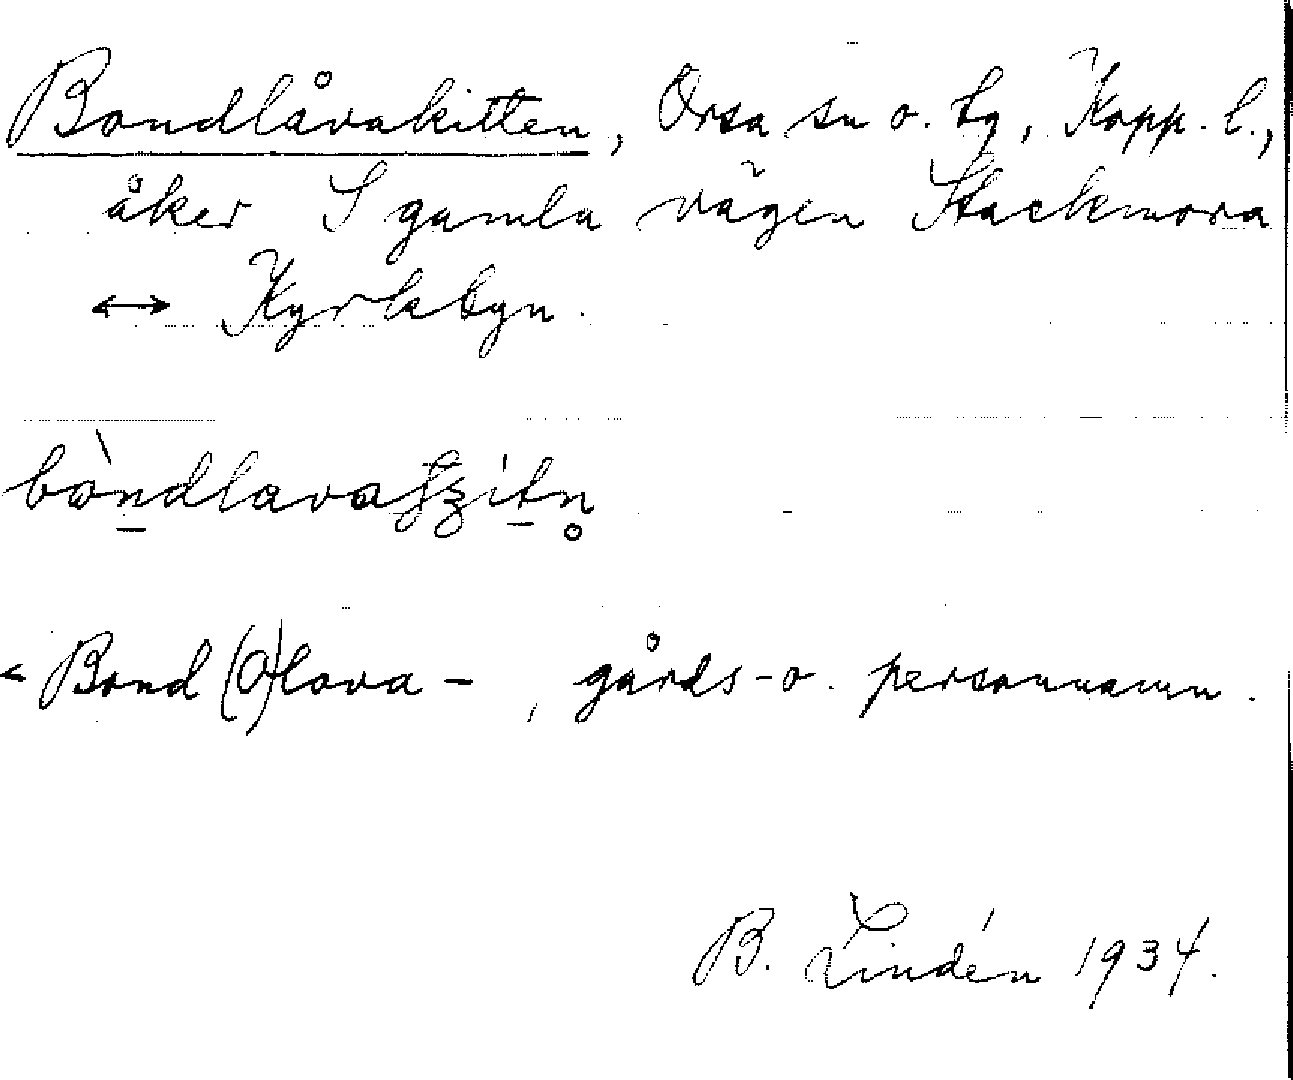 Bondlåvakitten, Orsa sn o. by, Kopp. l.,
åker S gamla vägen Stackmora
↔ Kyrkbyn.
< Bond(O)lova-, gårds- o. personnamn.
B. Lindén 1934.